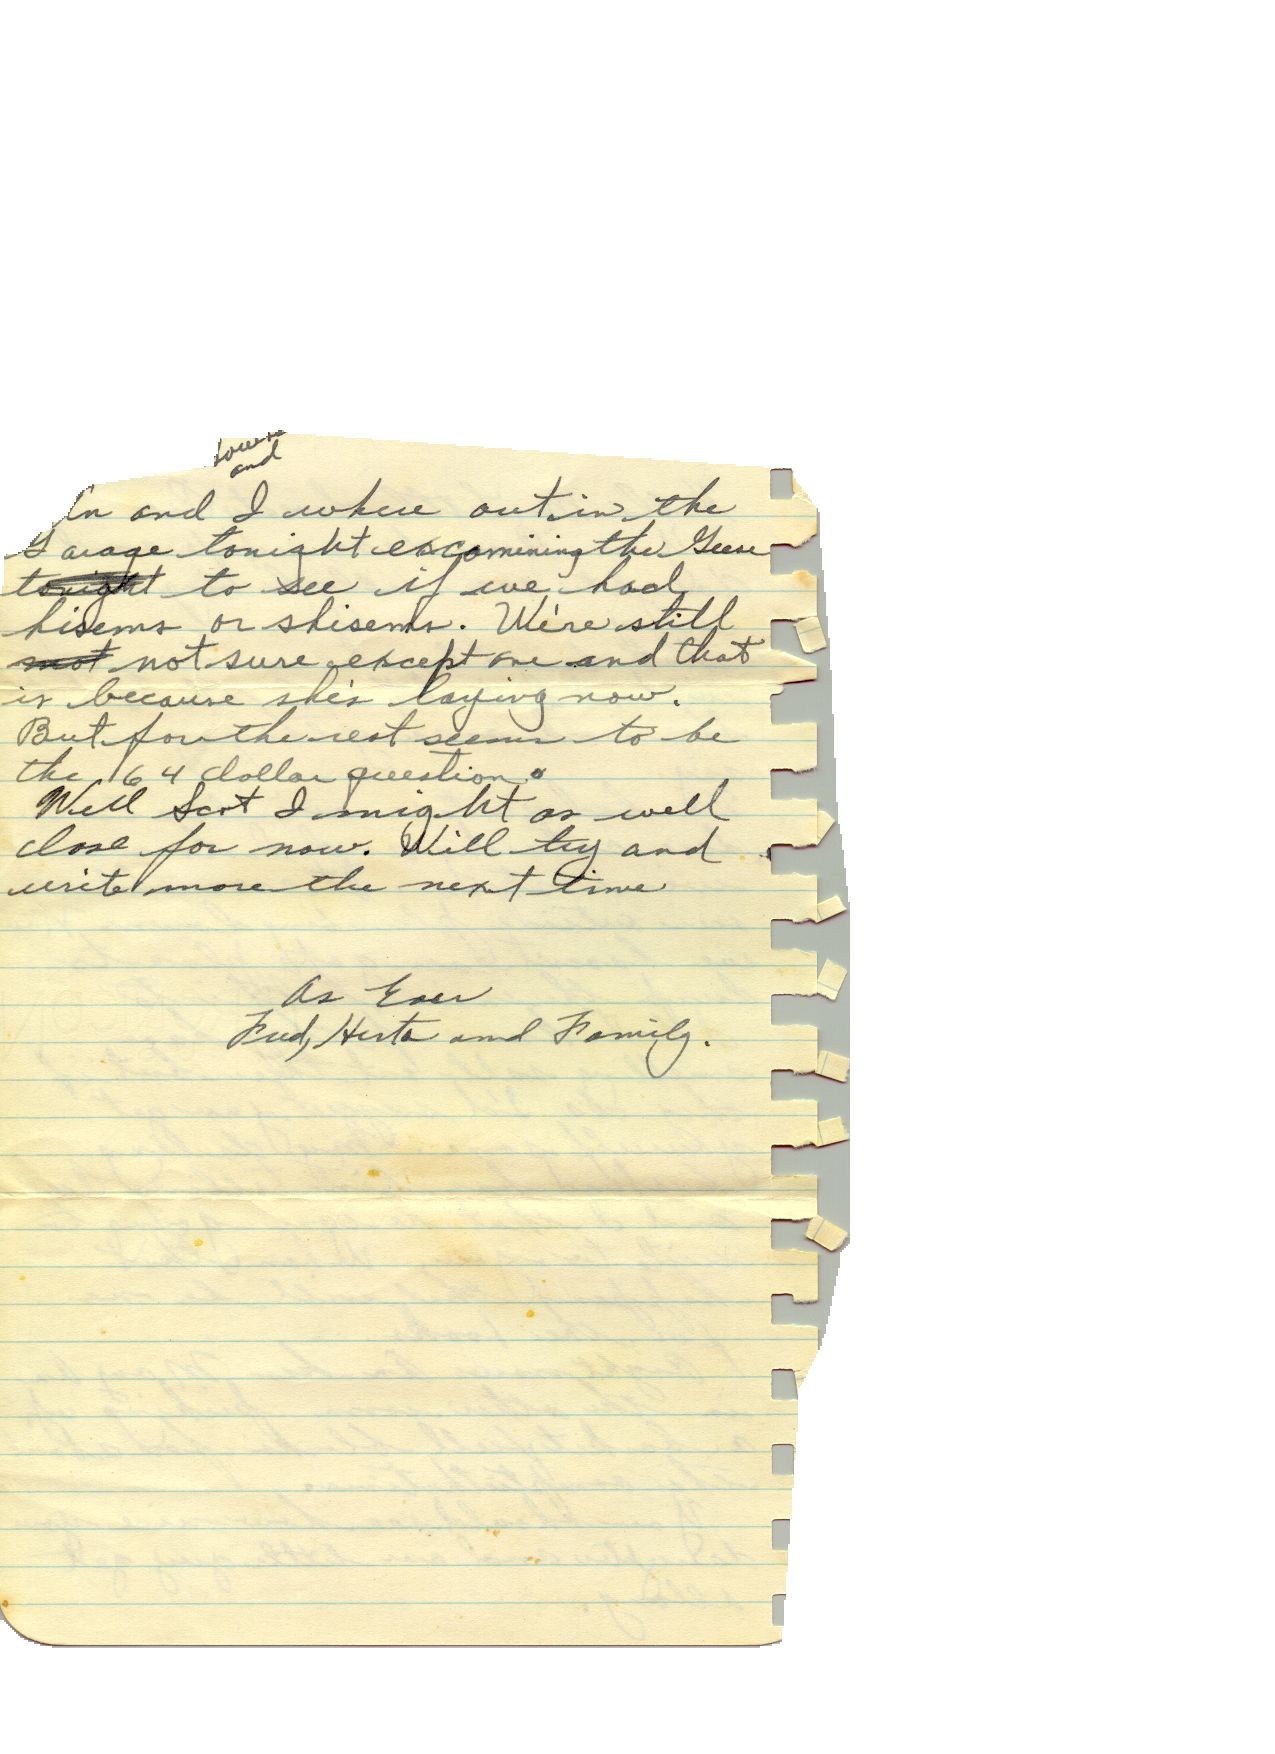 and
and I where out in the
Garage tonight excamining the Geese
tonight to see if we had
hisems or shisems. We're still
not not sure except one and that
is because she's laying now.
But for the rest seems to be
the 64 dollar question.
Well Scot I might as well
close for now. Will try and
write more the next time
As Ever
Fud, Herta and Family.